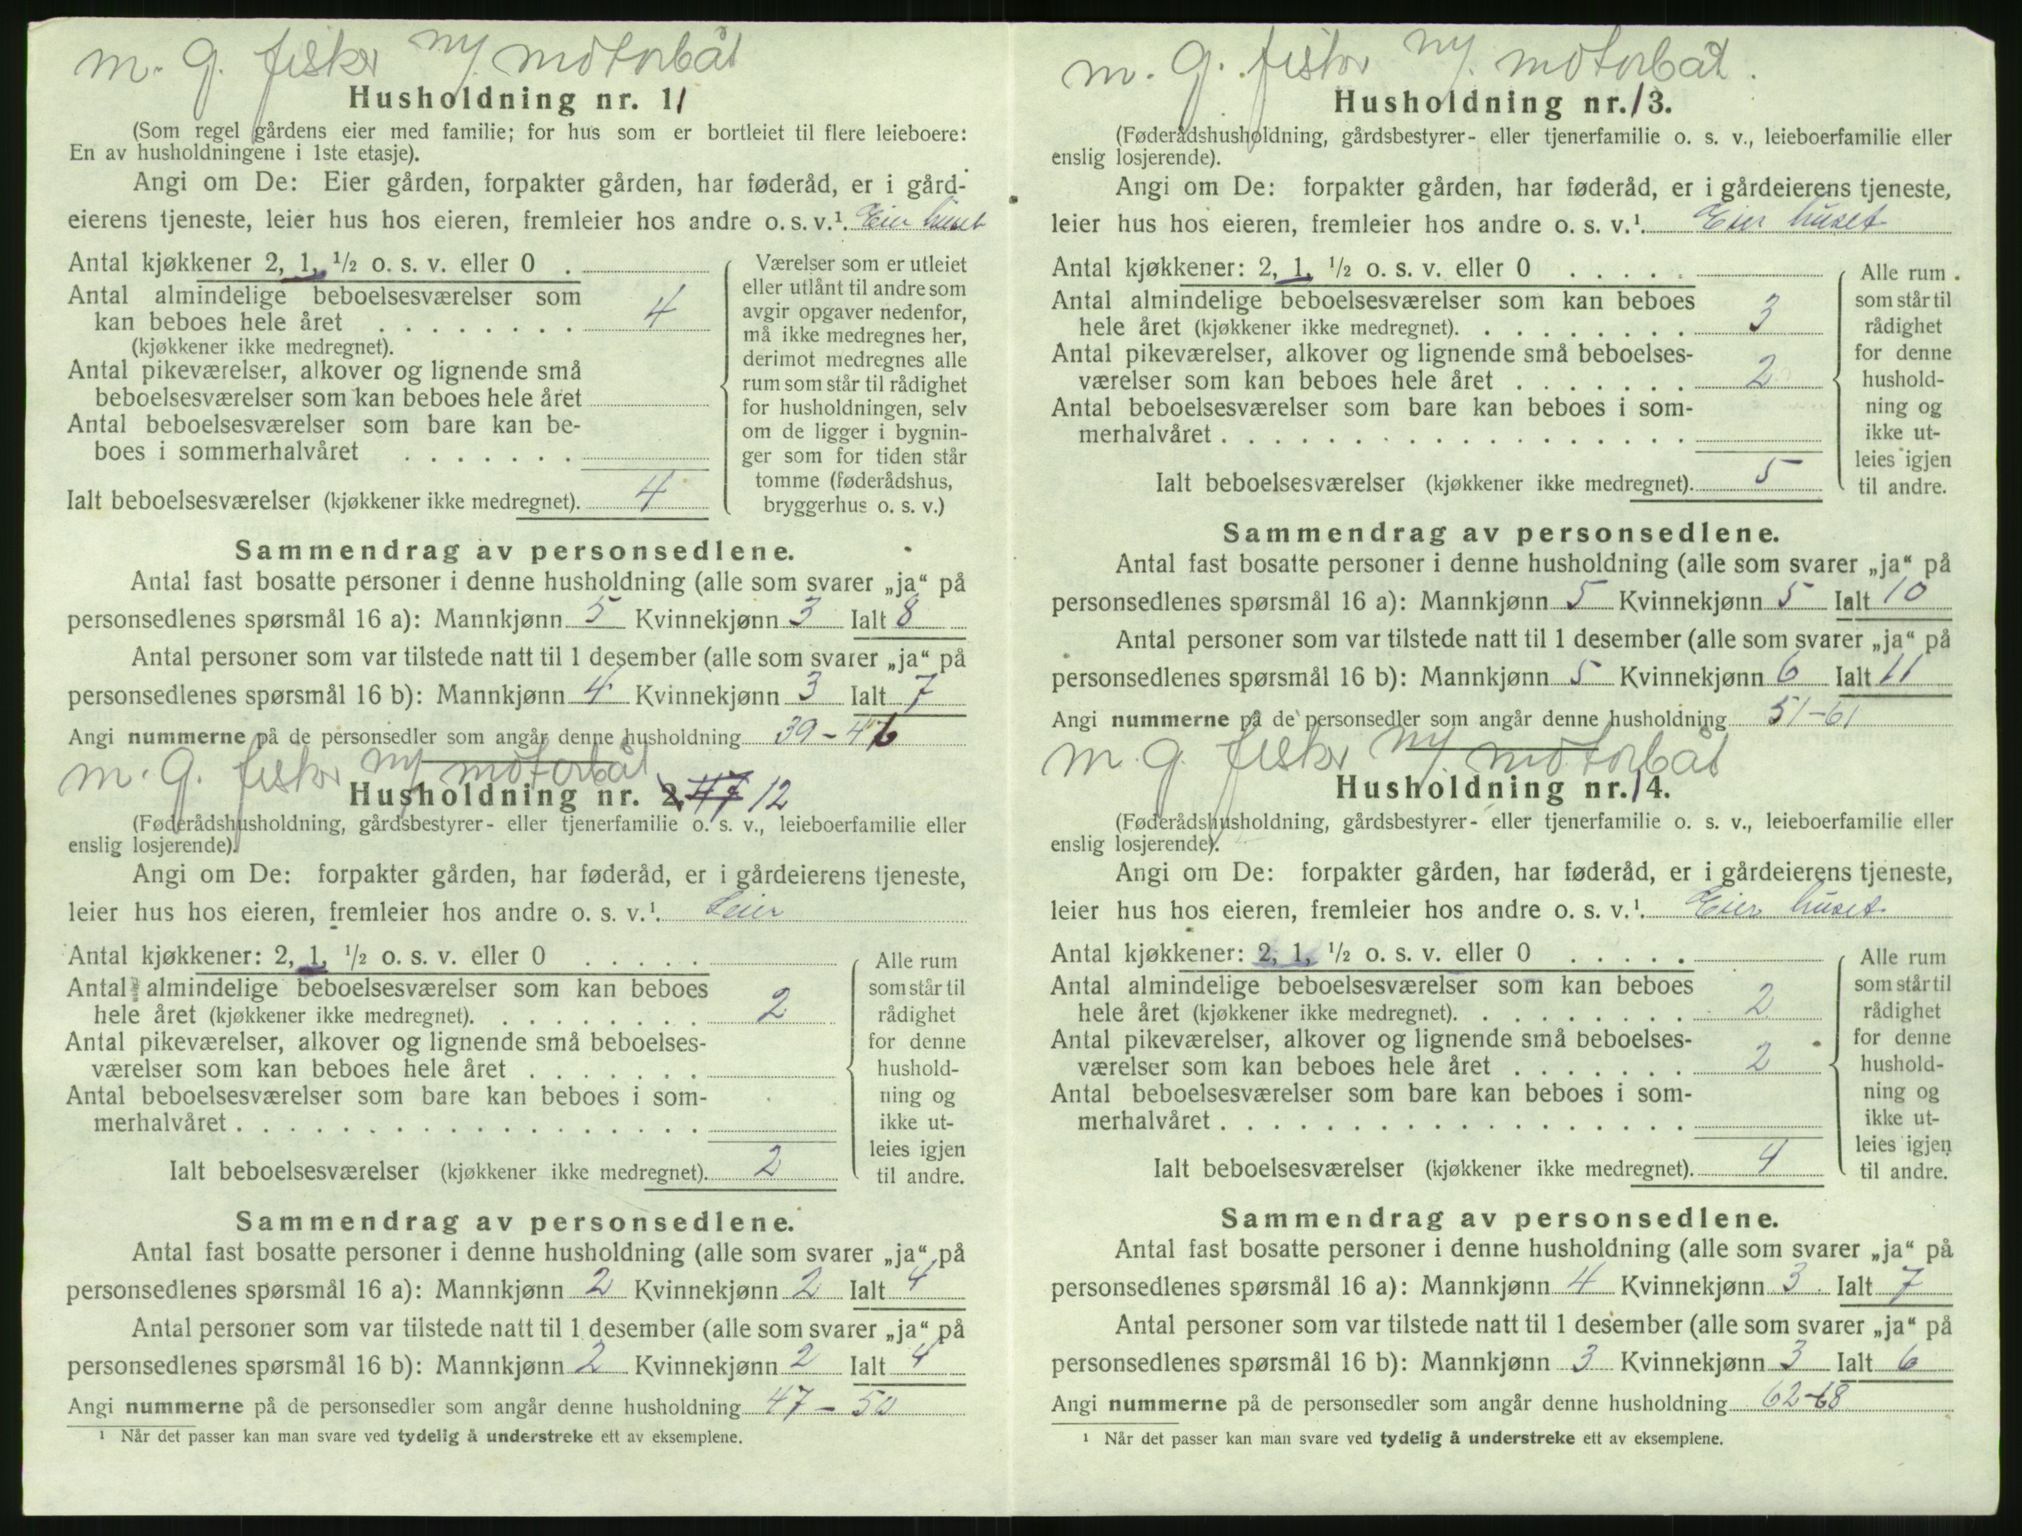 m. g. fisker ny motorbåt
Husholdning nr. 11
(Som regel gårdens eier med familie; for hus som er bortleiet til flere leieboere:
En av husholdningene i 1ste etasje).
Angi om De: Eier gården, forpakter gården, har føderåd, er i gård-
eierens tjeneste, leier hus hos eieren, fremleier hos andre o. s. v.¹ Eier huset
Antal kjøkkener 2, 1, ½ o. s. v. eller 0 .
Antal almindelige beboelsesværelser som
kan beboes hele året . . . . . . . . 4
(kjøkkener ikke medregnet).
Antal pikeværelser, alkover og lignende små
beboelsesværelser som kan beboes hele året
Antal beboelsesværelser som bare kan be-
boes i sommerhalvåret . . . . . . .
Ialt beboelsesværelser (kjøkkener ikke medregnet). 4
Værelser som er utleiet
eller utlånt til andre som
avgir opgaver nedenfor,
må ikke medregnes her,
derimot medregnes alle
rum som står til rådighet
for husholdningen, selv
om de ligger i bygnin-
ger som for tiden står
tomme (føderådshus,
bryggerhus o. s. v.)
Sammendrag av personsedlene.
Antal fast bosatte personer i denne husholdning (alle som svarer „ja“ på
personsedlenes spørsmål 16 a): Mannkjønn 5 Kvinnekjønn 3 Ialt 8
Antal personer som var tilstede natt til 1 desember (alle som svarer „ja“ på
personsedlenes spørsmål 16 b): Mannkjønn 4 Kvinnekjønn 3 Ialt 7
Angi nummerne på de personsedler som angår denne husholdning 39 – 46
m. g. fisker ny motorbåt
Husholdning nr. 2. 47 12
(Føderådshusholdning, gårdsbestyrer- eller tjenerfamilie o. s. v., leieboerfamilie eller
enslig losjerende).
Angi om De: forpakter gården, har føderåd, er i gårdeierens tjeneste,
leier hus hos eieren, fremleier hos andre o. s. v.¹ Leier
Antal kjøkkener: 2, 1, ½ o. s. v. eller 0 . . . . .
Antal almindelige beboelsesværelser som kan beboes
hele året (kjøkkener ikke medregnet). . . . . . . . . 2
Antal pikeværelser, alkover og lignende små beboelses-
værelser som kan beboes hele året . . . . . . .
Antal beboelsesværelser som bare kan beboes i som-
merhalvåret . . . . . . . . . . . . . . . . . .
Ialt beboelsesværelser (kjøkkener ikke medregnet). 2
Alle rum
som står til
rådighet
for denne
hushold-
ning og
ikke ut-
leies igjen
til andre.
Sammendrag av personsedlene.
Antal fast bosatte personer i denne husholdning (alle som svarer „ja“ på
personsedlenes spørsmål 16 a): Mannkjønn 2 Kvinnekjønn 2 Ialt 4
Antal personer som var tilstede natt til 1 desember (alle som svarer „ja“ på
personsedlenes spørsmål 16 b): Mannkjønn 2 Kvinnekjønn 2 Ialt 4
Angi nummerne på de personsedler som angår denne husholdning 47 – 50
¹ Når det passer kan man svare ved tydelig å understreke ett av eksemplene.
m. g. fisker ny motorbåt.
Husholdning nr. 13.
(Føderådshusholdning, gårdsbestyrer- eller tjenerfamilie o. s. v., leieboerfamilie eller
enslig losjerende).
Angi om De: forpakter gården, har føderåd, er i gårdeierens tjeneste,
leier hus hos eieren, fremleier hos andre o. s. v.¹ Eier huset
Antal kjøkkener: 2, 1, ½ o. s. v. eller 0 . . . . .
Antal almindelige beboelsesværelser som kan beboes
hele året (kjøkkener ikke medregnet). . . . . . . . . 3
Antal pikeværelser, alkover og lignende små beboelses-
værelser som kan beboes hele året . . . . . . . 2
Antal beboelsesværelser som bare kan beboes i som-
merhalvåret . . . . . . . . . . . . . . . . . .
Ialt beboelsesværelser (kjøkkener ikke medregnet). 5
Alle rum
som står til
rådighet
for denne
hushold-
ning og
ikke ut-
leies igjen
til andre.
Sammendrag av personsedlene.
Antal fast bosatte personer i denne husholdning (alle som svarer „ja“ på
personsedlenes spørsmål 16 a): Mannkjønn 5 Kvinnekjønn 5 Ialt 10
Antal personer som var tilstede natt til 1 desember (alle som svarer „ja“ på
personsedlenes spørsmål 16 b): Mannkjønn 5 Kvinnekjønn 6 Ialt 11
Angi nummerne på de personsedler som angår denne husholdning 51 – 61
m. g. fisker ny motorbåt
Husholdning nr. 14.
(Føderådshusholdning, gårdsbestyrer- eller tjenerfamilie o. s. v., leieboerfamilie eller
enslig losjerende).
Angi om De: forpakter gården, har føderåd, er i gårdeierens tjeneste,
leier hus hos eieren, fremleier hos andre o. s. v.¹ Eier huset
Antal kjøkkener: 2, 1, ½ o. s. v. eller 0 . . . . .
Antal almindelige beboelsesværelser som kan beboes
hele året (kjøkkener ikke medregnet). . . . . . . . . 2
Antal pikeværelser, alkover og lignende små beboelses-
værelser som kan beboes hele året . . . . . . . 2
Antal beboelsesværelser som bare kan beboes i som-
merhalvåret . . . . . . . . . . . . . . . . . .
Ialt beboelsesværelser (kjøkkener ikke medregnet). 4
Alle rum
som står til
rådighet
for denne
hushold-
ning og
ikke ut-
leies igjen
til andre.
Sammendrag av personsedlene.
Antal fast bosatte personer i denne husholdning (alle som svarer „ja“ på
personsedlenes spørsmål 16 a): Mannkjønn 4 Kvinnekjønn 3 Ialt 7
Antal personer som var tilstede natt til 1 desember (alle som svarer „ja“ på
personsedlenes spørsmål 16 b): Mannkjønn 3 Kvinnekjønn 3 Ialt 6
Angi nummerne på de personsedler som angår denne husholdning 62-68
¹ Når det passer kan man svare ved tydelig å understreke ett av eksemplene.